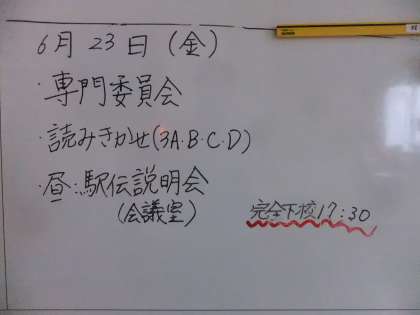 6月23日(金)
・専門委員会
・読みきかせ(3A・B・C・D)
・昼:駅伝説明会
(会議室)
完全下校17:30